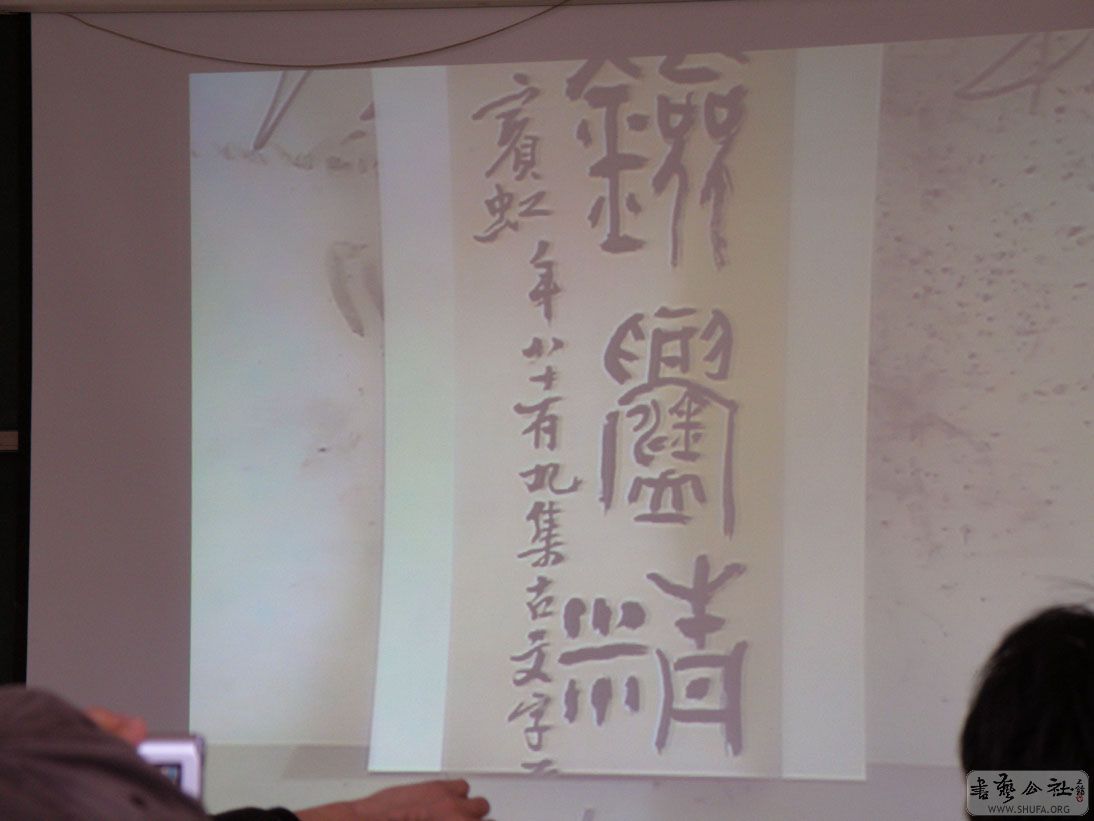 鐱鑄清
賓虹年八十有九集古文字
書藝公社
WWW.SHUFA.ORG